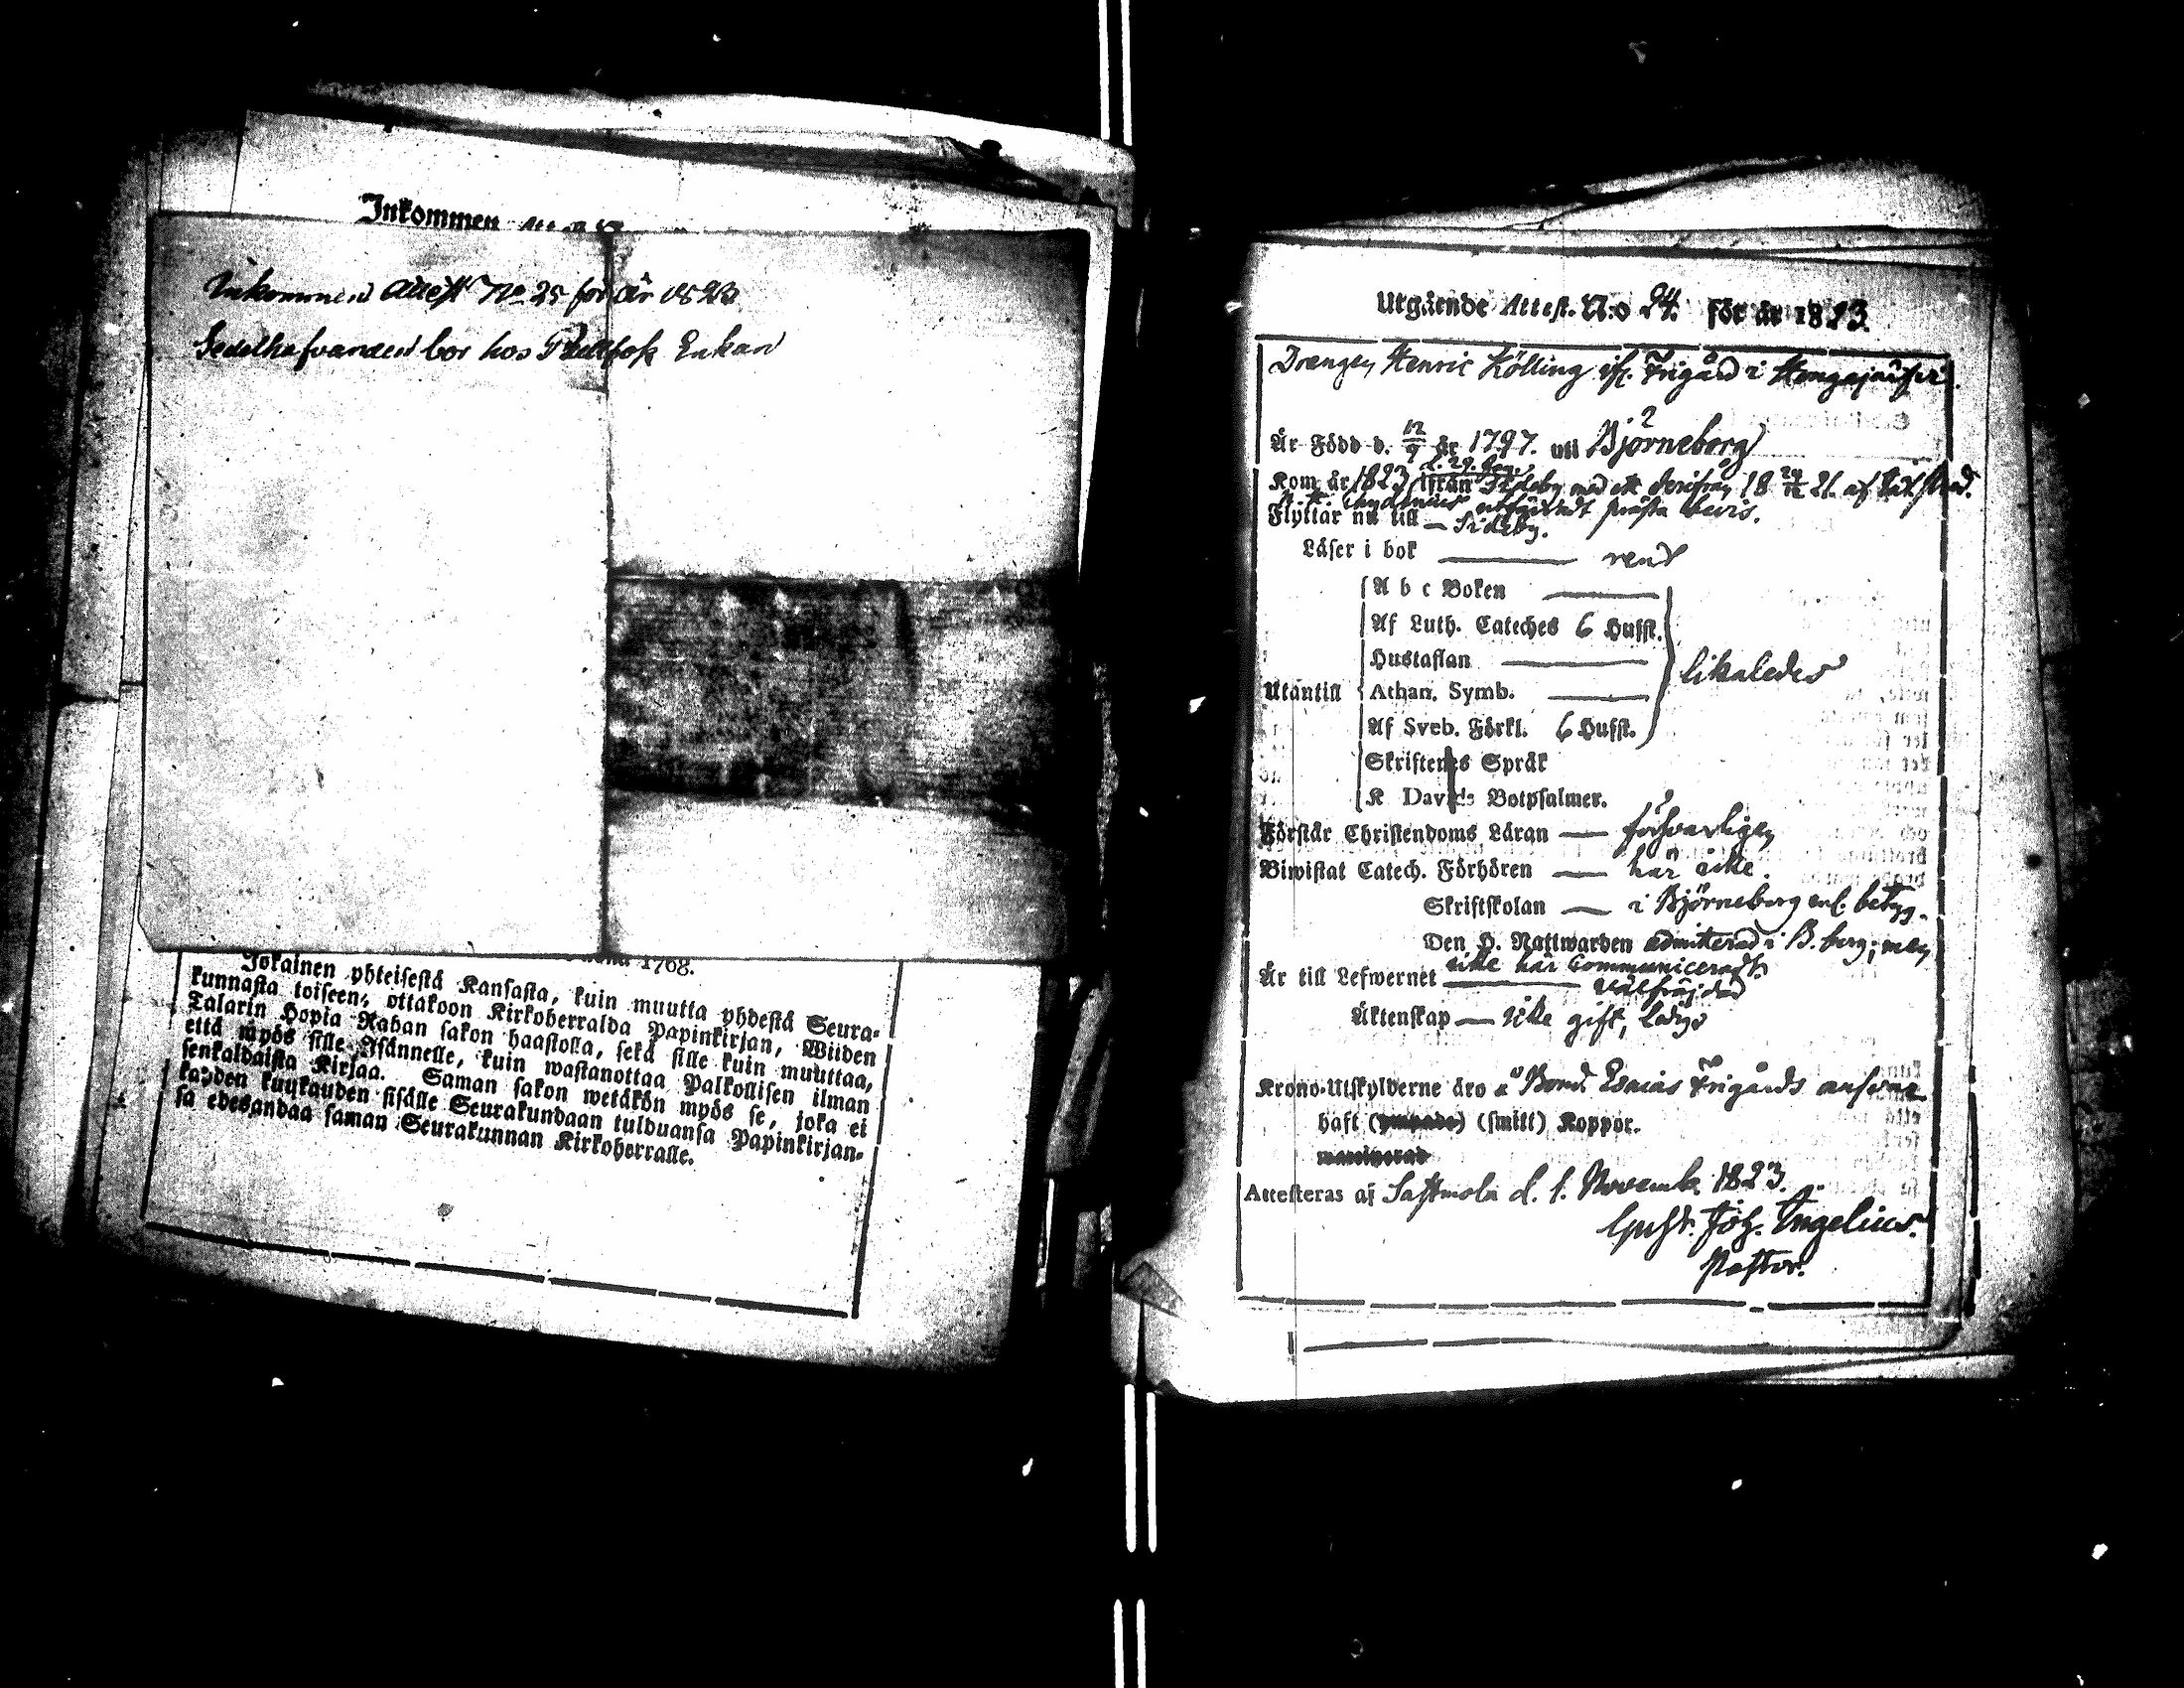 Inkommen
Inkommen Attest No 25 för År 1823
Sedelhafvanden bor hos Enkan
1768.
Jokainen yhteisestä Kansasta, kuin muutta yhdestä Seura-
kunnasta toiseen, ottakoon Kirkoherralda Papinkirjan, Wiiden
Talarin Hopia Rahan sakon haastolla, sekä sille kuin muuttaa,
että myös sille Isännelle, kuin wastanottaa Palkollisen ilman
senkaldaista Kirjaa. Saman sakon wetäkön myös se, joka ei
kahden kuukauden sisälle Seurakundaan tulduansa Papinkirjan-
sa edesandaa saman Seurakunnan Kirkoherralle.
Utgående Attest. N:o 24. för år 1823.
Drengen Henric Kölling ifr. Frigård i
Är Född d. 12/9 år 1797. uti Björneborg
Kom år 1823 d. 29. ifrån Sideby med ett derifrån 18 24/12 21. af
utfärdadt prästa bevis.
Flyttar nu till — Sideby.
Läser i bok — rent
A b c Boken —
Af Luth. Cateches 6 Hufst.
Hustaflan —
Utantill Athan. Symb. — likaledes
Af Sveb. Förkl. 6 Hufst.
Skriftenes Språk
K Davids Botpsalmer.
Förstår Christendoms Läran — försvarligen
Biwistat Catech. Förhören — här icke.
Skriftskolan — i Björneborg enl. betyg.
Den H. Nattwarden admitterad i B.borg; men
icke här communiceradt
Är till Lefwernet — välfräjdad
Äktenskap — icke gift, ledig
Krono-Utskylderne äro å Bond. Esaias Frigårds ansvar
haft (smitt) Koppor.
Attesteras af Sastmola d. 1. Novemb. 1823.
Gust. Joh. Ingelius.
Pastor.